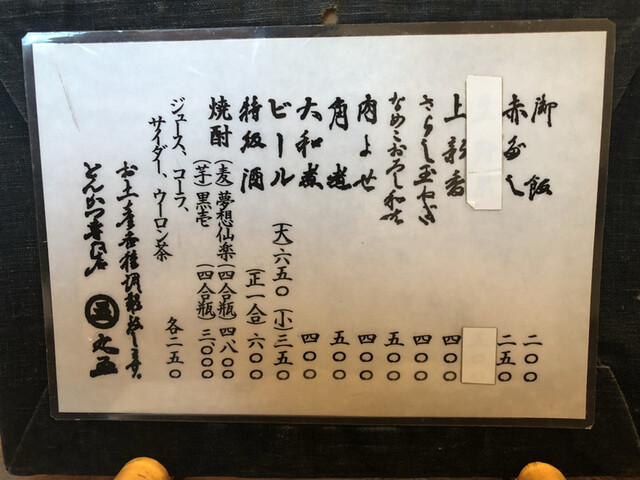 御飯 二〇〇
赤だし 二五〇
上新香 四〇〇
さらし玉ねぎ 四〇〇
なめこおろし和え 五〇〇
肉よせ 四〇〇
角煮 五〇〇
大和煮 四〇〇
ビール (大)六五〇 (小)三五〇
特級酒 (正一合)六〇〇
焼酎 (麦)夢想仙楽(四合瓶)四八〇〇
(芋)黒壱(四合瓶)三〇〇〇
ジュース、コーラ、
サイダー、ウーロン茶 各二五〇
お土産各種調製致します。
とんかつ専門店